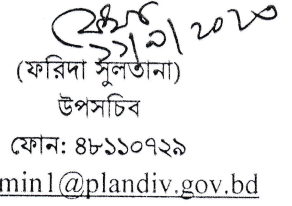 (ফরিদা সুলতানা)
উপসচিব
ফোন: ৪৮১১০৭২৯
min1@plandiv.gov.bd